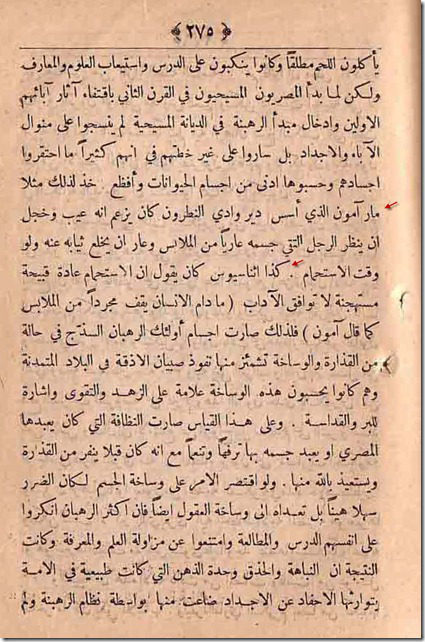 ﴿ ٢٧٥ ﴾
يأكلون اللحم مطلقاً وكانوا ينكبون على الدرس واستيعاب العلوم والمعارف
ولكن لما بدأ المصريون المسيحيون في القرن الثاني باقتفاء آثار آبائهم
الاولين وادخال مبدأ الرهبنة في الديانة المسيحية لم ينسجوا على منوال
الآباء والاجداد بل ساروا على غير خطتهم في انهم كثيراً ما احتقروا
اجسادهم وحسبوها ادنى من اجسام الحيوانات وأفظع . خذ لذلك مثلا
مار آمون الذي أسس دير وادي النطرون كان يزعم انه عيب وخجل
ان ينظر الرجل التقي جسمه عارياً من الملابس وعار ان يخلع ثيابه عنه ولو
وقت الاستحمام . كذا اثناسيوس كان يقول ان الاستحمام عادة قبيحة
مستهجنة لا توافق الآداب ( ما دام الانسان يقف مجرداً من الملابس
كما قال آمون ) فلذلك صارت اجسام أولئك الرهبان السذّج في حالة
من القذارة والوساخة تشمئز منها نفوذ صبيان الاذقة في البلاد المتمدنة
وهم كانوا يحسبون هذه الوساخة علامة على الزهد والتقوى واشارة
للبر والقداسة . وعلى هذا القياس صارت النظافة التي كان يعبدها
المصري او يعبد جسمه بها ترفهاً وتنعماً مع انه كان قبلا ينفر من القذارة
ويستعيذ بالله منها . ولو اقتصر الامر على وساخة الجسم لكان الضرر
سهلا هيناً بل تعداه الى وساخة العقول ايضاً فان اكثر الرهبان انكروا
على انفسهم الدرس والمطالعة وامتنعوا عن مزاولة العلم والمعرفة وكانت
النتيجة ان النباهة والحذق وحدة الذهن التي كانت طبيعية في الامة
يتوارثها الاحفاد عن الاجداد ضاعت منها بواسطة نظام الرهبنة ولم